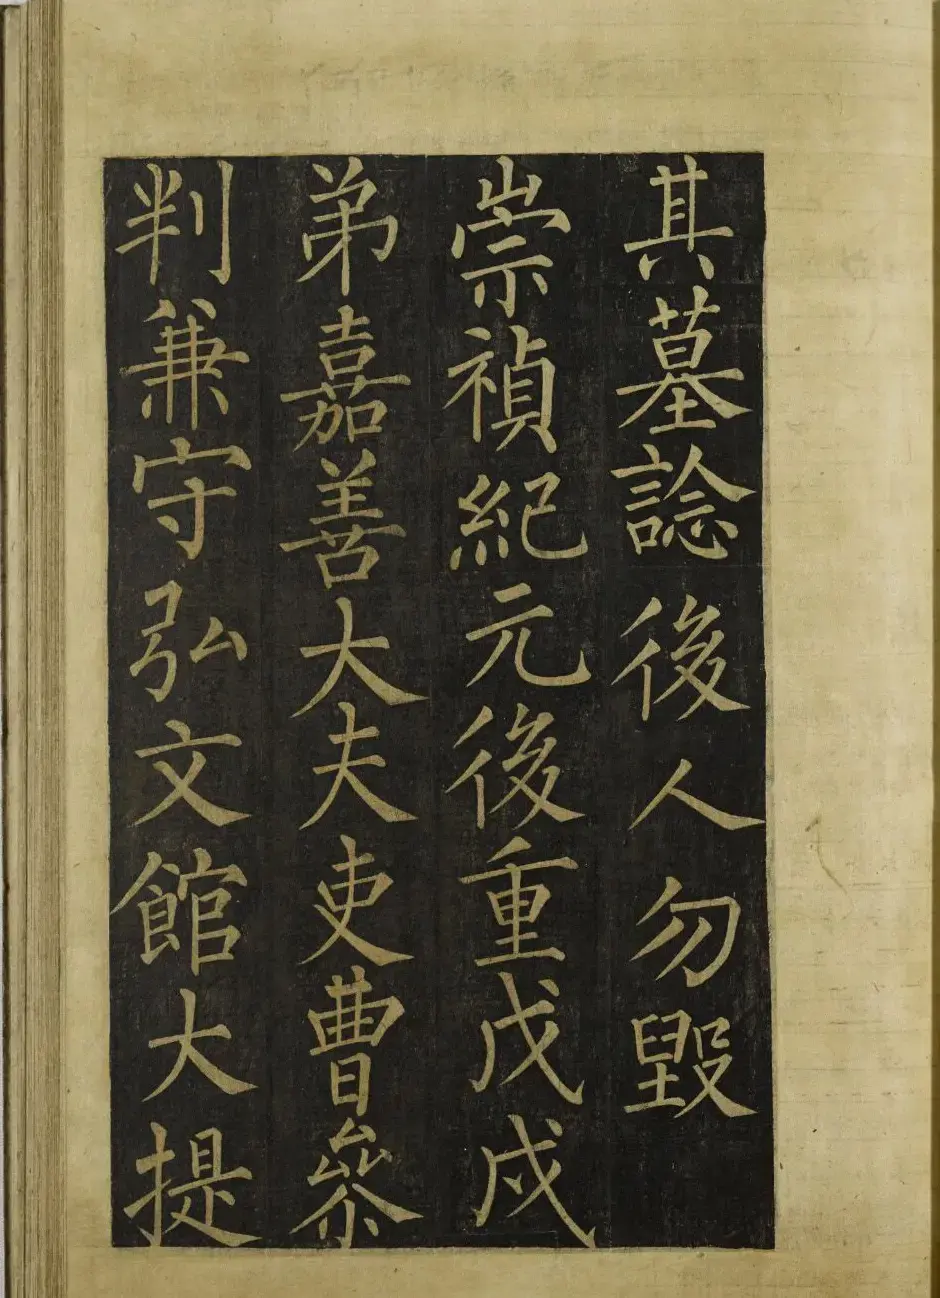 其墓諗後人勿毀
崇禎紀元後重戊戌
弟嘉善大夫吏曹叅
判兼守弘文館大提